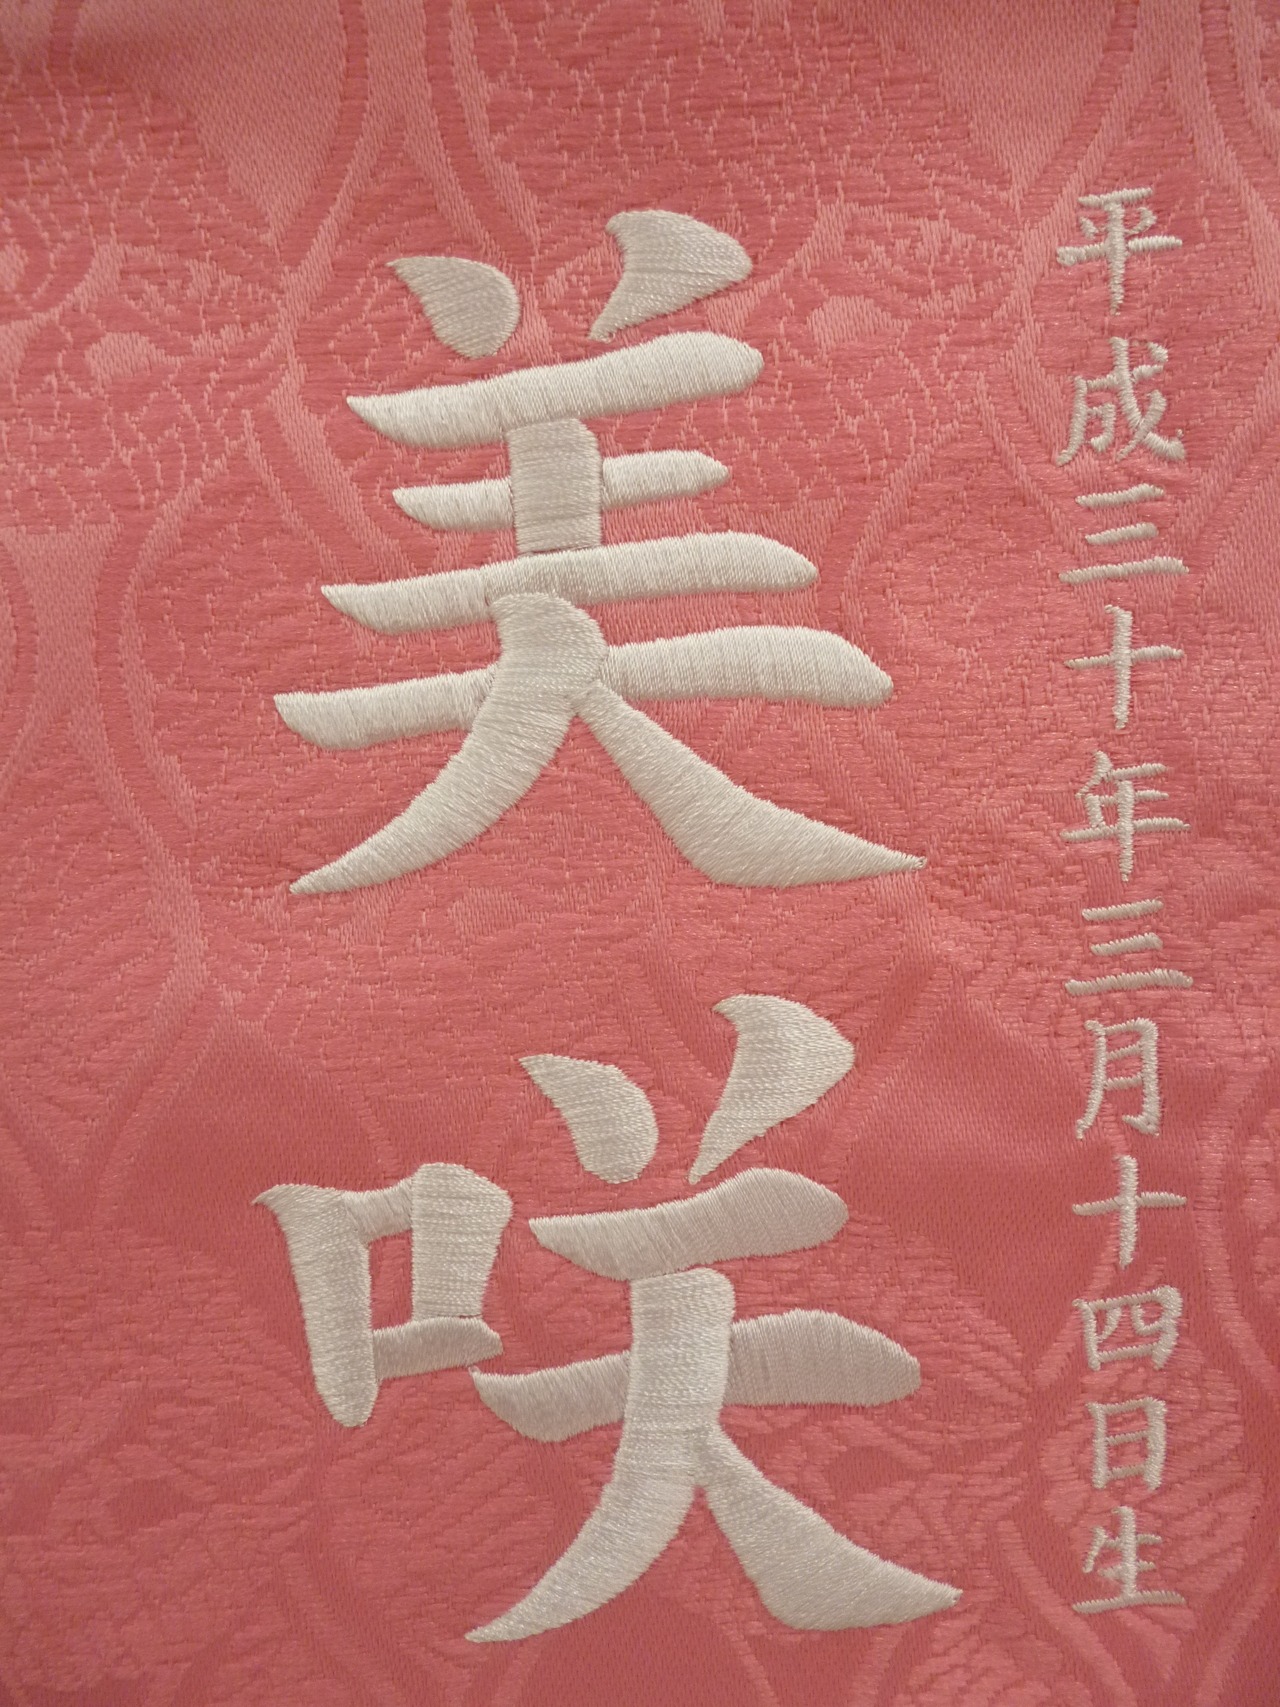 平成三十年三月十四日生
美咲